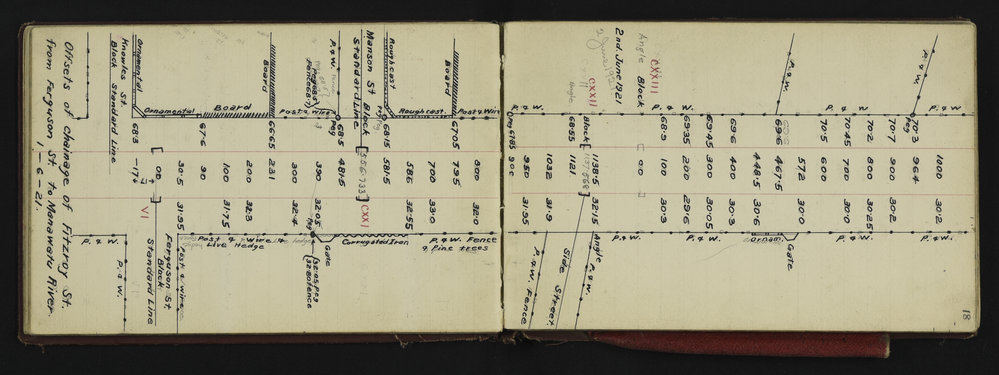 18
P. & W. 1000 30.2
P. & W. 70.3 Peg 964
70.7 900 30.2
70.2 800 30.25
P. & W. 70.45 700 30.0 P. & W.
70.5 600
572 30.0 Gate
P. & W. 69.6 467.5
448.5 30.6 Ornam.
69.6 400 30.3
69.45 300 30.05
69.35 200 29.6 P. & W.
P. & W. 68.9 100 30.3
CXXIII
Angle Block 00 00
2nd. June 1921
2 June 1921
P. & W.
CXXII Block 1138.5 32.15 Angle
Angle 68.55 1121
Side Street.
1032 31.9
P. & W. 950 31.95 P. & W. Fence
67.85 906
Post & Wire 800 32.0
67.05 795
Board 700 33.0 P. & W. Fence & Pine trees
Roughcast 586 32.55
Roughcast 68.15 581.5 Corrugated Iron
Manson St Block CXXI
Standard Line
P. & W. 68.5 Peg 481.5
Gate
390 32.05 Peg 32.05 peg
32.20 fence
Post & Wire 300 32.4
66.65 231
Board 200 32.3
Board 100 31.75 Post & Wire
Live Hedge
67.6 90
Ornamental 30.5 31.95 Post & wire
Ornamental 00 Ferguson St
Block
68.3 -17.4 VI Standard Line
Knowles St.
Block Standard Line
P. & W. P. & W.
Offsets of chainage of Fitzroy St.
from Ferguson St. to Manawatu River.
1-6-21.